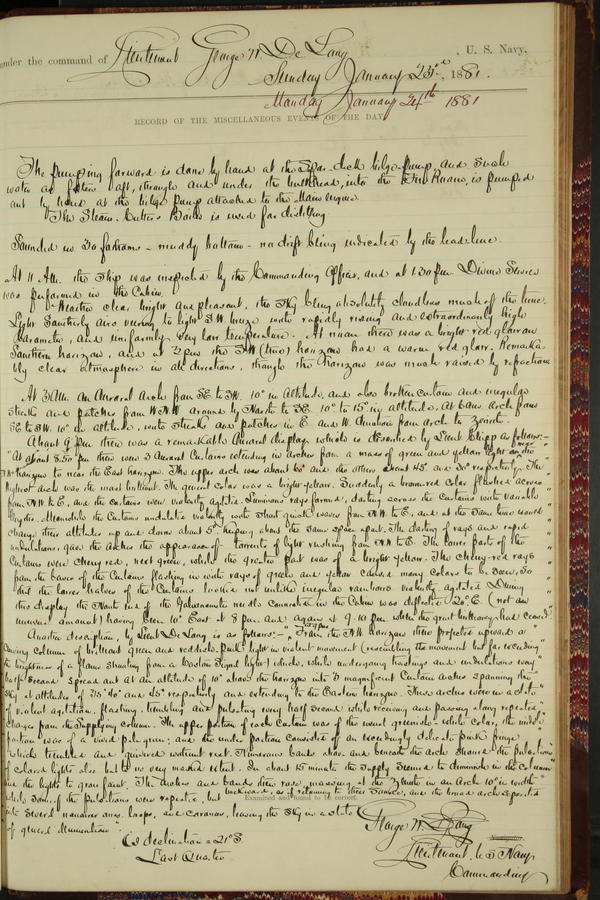 under the command of Lieutenant George W. De Long, U. S. Navy,
Sunday January 23rd, 1881.
Monday January 24th 1881
RECORD OF THE MISCELLANEOUS EVENTS OF THE DAY
The pumping forward is done by hand at the Spar deck bilge pump, and such
water as filters aft, through and under the bulkhead, into the Fire Room, is pumped
out by hand at the bilge pump attached to the Main engine.
The Steam Cutters Boiler is used for distilling
Sounded in 30 fathoms - muddy bottom - no drift being indicated by the lead line.
At 11 A.M. the ship was inspected by the Commanding Officer, and at 1.30 p.m. Divine Service
was performed in the Cabin.
Weather clear bright and pleasant, the sky being absolutely cloudless much of the time.
Light Southerly airs, veering to light S.W. breeze with rapidly rising and extraordinarily high
barometer, and uniformly very low temperature. At noon there was a bright red glare on
Southern horizon, and at 2 p.m. the SW (true) horizon had a warm red glare. Remarka-
bly clear atmosphere in all directions, though the horizon was much raised by refraction
At 3 A.M. an Auroral Arch from SE to SW. 10° in altitude, and also broken curtains and irregular
streaks and patches from WNW around by North to SE 10° to 15° in altitude. At 6 a.m. Arch from
SE to SW. 10° in altitude, with streaks and patches in E and W.
About 9 p.m. there was a remarkable Auroral display which is described by Lieut Chipp as follows:-
"At about 8.50 p.m. there were 3 Auroral Curtains extending in arches from a mass of green and yellow light on the
horizon to near the East horizon. The upper arch was about 60° and the others about 45° and 30° respectively. The
highest arch was the most brilliant. The general color was a bright yellow. Suddenly a brownish red color flashed across
from NW to E, and the curtains were violently agitated. Luminous rays formed, darting across the Curtains with variable
lengths. Meanwhile the Curtains undulated violently with short quick waves from NW to E, and at the same time would
change their altitudes up and down about 5°, keeping about the same space apart. The darting of rays and rapid
undulations, gave the arches the appearance of torrents of light rushing from NW to E. The lower part of the
Curtains were cherry red, next green, while the greater part was of a bright yellow. The cherry red rays
from the bases of the Curtains flashing in with rays of green and yellow caused many colors to be seen, so
that the lower halves of the Curtains looked not unlike irregular rainbows violently agitated. During
this display the North end of the Galvanometer needle connected in the Cabin was deflected 20° E (not an
unusual amount) having been 10° East at 8 p.m. and again at 9.10 p.m. when the great brilliancy had ceased."
Another description, by Lieut De Long is as follows:- "From the NW horizon there projected upward a
column of brilliant green and reddish pink light in violent movement (resembling the movement but far exceeding
the brightness of a flame shooting from a Coston Signal light) which, while undergoing twistings and undulations every
half second spread out at an altitude of 10° above the horizon into 3 magnificent Curtain Arches spanning the
sky at altitudes of 35° 40° and 65° respectively and extending to the Eastern horizon. These arches were in a state
of violent agitation, flashing, trembling and pulsating every half second while receiving and passing along repeated
charges from the supplying column. The upper portion of each Curtain was of the usual greenish white color, the middle
portion was of a vivid pale green; and the under portion consisted of an exceedingly delicate pink fringe
which trembled and quivered without rest. Numerous bands above and beneath the arch shared the pulsations
of colored light also but to no very marked extent. In about 15 minutes the supply seemed to diminish in the Column
and the lights to grow faint. The arches and bands then rose, massing at the Zenith in an Arch 10° in width
while some of the pulsations were repeated, but backward, as if returning to their source, and the broad arch separated
into several nondescript arcs, loops, and coronas, leaving the sky in a state
of general illumination."
Examined and found to be correct.
☾ declination = 21° S.
Last Quarter
George W. De Long
Lieutenant U.S. Navy
Commanding